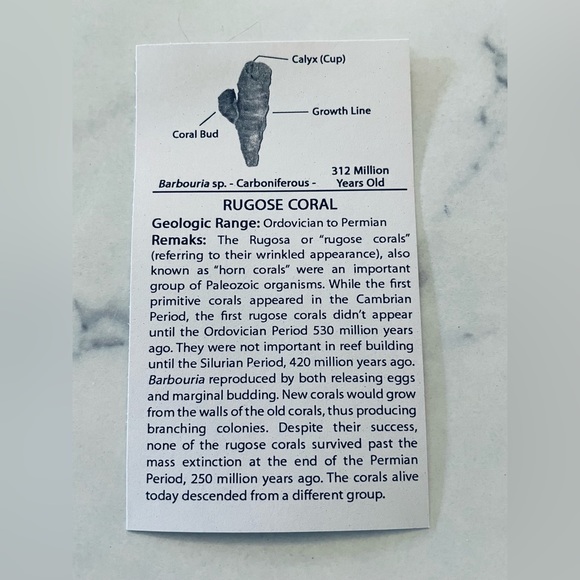 Calyx (Cup)
Growth Line
Coral Bud
312 Million
Barbouria sp. - Carboniferous - Years Old
RUGOSE CORAL
Geologic Range: Ordovician to Permian
Remaks: The Rugosa or “rugose corals”
(referring to their wrinkled appearance), also
known as “horn corals” were an important
group of Paleozoic organisms. While the first
primitive corals appeared in the Cambrian
Period, the first rugose corals didn’t appear
until the Ordovician Period 530 million years
ago. They were not important in reef building
until the Silurian Period, 420 million years ago.
Barbouria reproduced by both releasing eggs
and marginal budding. New corals would grow
from the walls of the old corals, thus producing
branching colonies. Despite their success,
none of the rugose corals survived past the
mass extinction at the end of the Permian
Period, 250 million years ago. The corals alive
today descended from a different group.